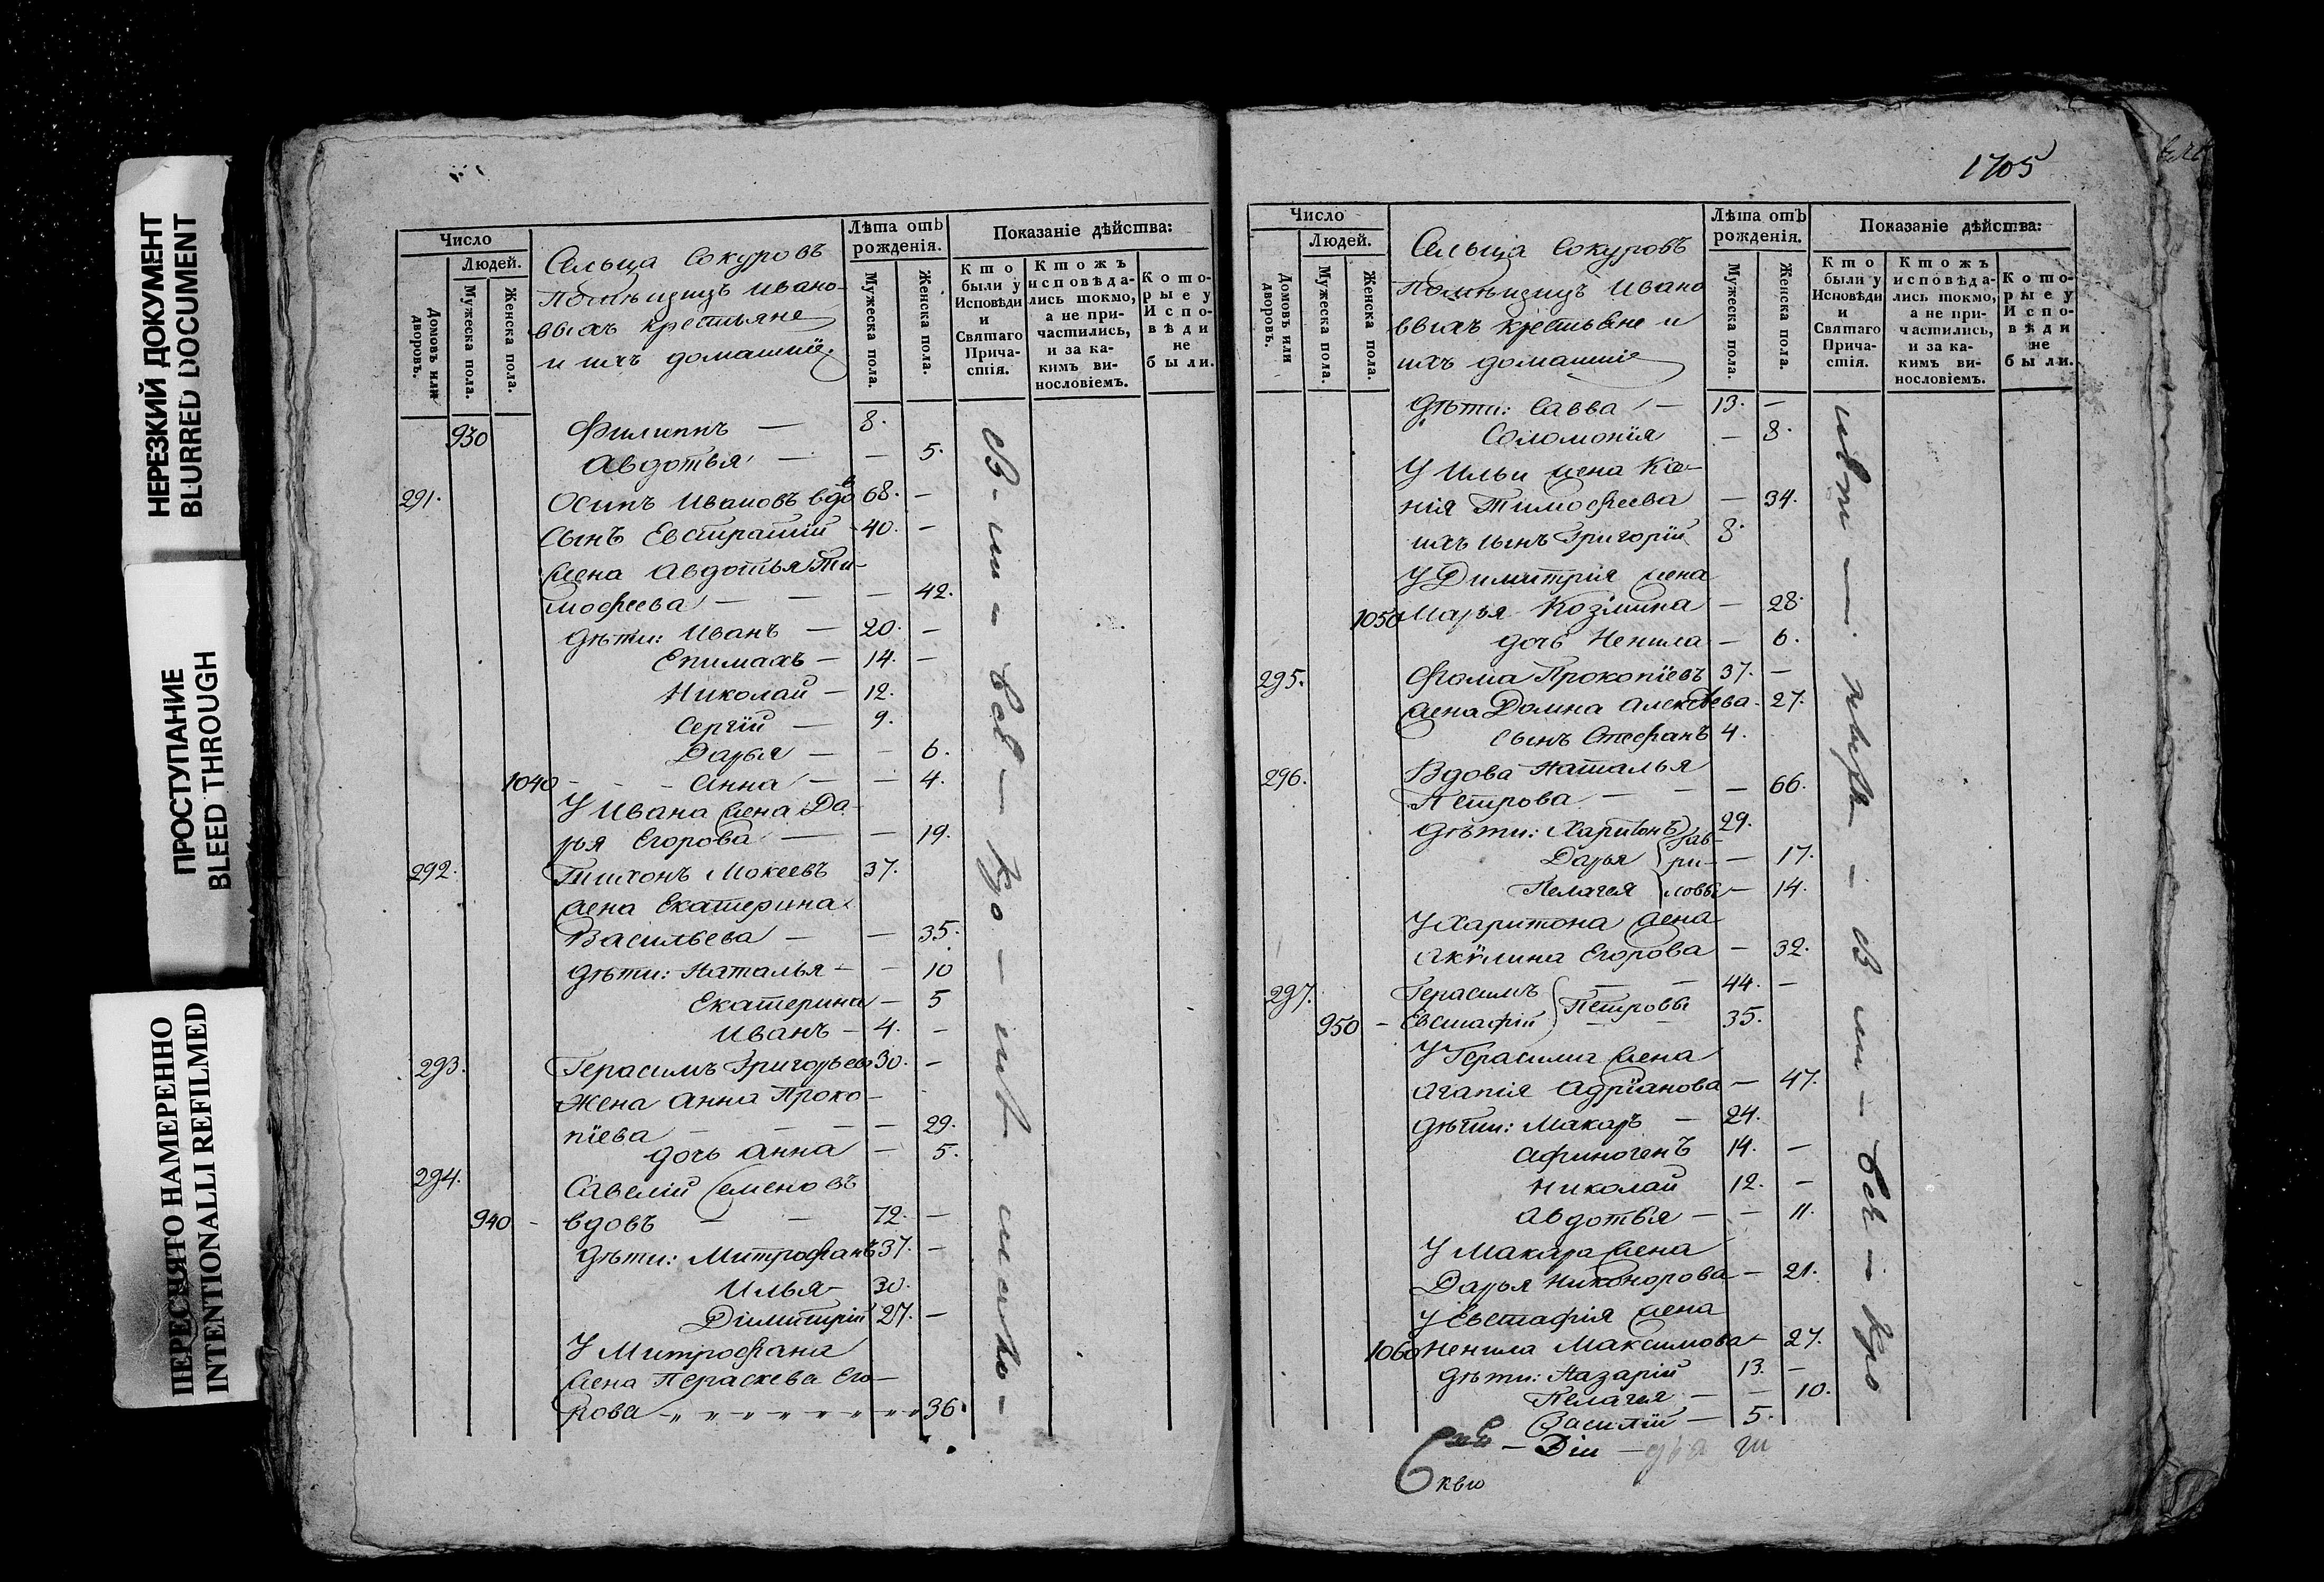 НЕРЕЗКИЙ ДОКУМЕНТ
BLURRED DOCUMENT
ПРОСТУПАНИЕ
BLEED THROUGH
ПЕРЕСНЯТО НАМЕРЕННО
INTENTIONALLI REFILMED
Число
Людей.
Домовъ или дворовъ.
Мужеска пола.
Женска пола.
Сельца Сокуровъ
Помѣщицъ Ивано-
выхъ крестьяне
и ихъ домашніе.
Лѣта отъ рожденія.
Мужеска пола.
Женска пола.
Показаніе дѣйства:
Кто были у Исповѣди и Святаго Причастія.
Ктожъ исповѣдались токмо, а не причастились, и за какимъ винословіемъ.
Которые у Исповѣди не были.
930 Филиппъ — 8.
Авдотья — — 5.
291. Осипъ Ивановъ вдов 68. —
сынъ Евстратій 40. —
жена Авдотья Ти-
мофеева — — — 42.
Дѣти: Иванъ — 20. —
Епимахъ — 14. —
Николай — 12.
Сергій — 9.
Дарья — — 6.
1040 - - - Анна — — 4.
У Ивана жена Да-
рья Егорова — — 19.
292. Тихонъ Мокеевъ 37.
жена Екатерина
Васильева — — 35.
Дѣти: Наталья — — 10
Екатерина — 5
Иванъ — 4. —
293. Герасимъ Григорьевъ 30. —
Жена Анна Проко-
піева — — — — 29.
дочь Анна — 5.
294. Савелій Семеновъ
940 - вдовъ — — 72. —
Дѣти: Митрофанъ 37. —
Илья — 30.
Дімитрій 27. —
У Митрофана
жена Пераскева Его-
рова 36.
1705
Число
Людей.
Домовъ или дворовъ.
Мужеска пола.
Женска пола.
Сельца Сокуровъ
Помѣщицъ Ивано
выхъ крестьяне и
ихъ домашніе
Лѣта отъ рожденія.
Мужеска пола.
Женска пола.
Показаніе дѣйства:
Кто были у Исповѣди и Святаго Причастія.
Ктожъ исповѣдались токмо, а не причастились, и за какимъ винословіемъ.
Которые у Исповѣди не были.
Дѣти: Савва — 13. —
Соломонія — 8.
У Ильи жена
Тимофеева — 34.
ихъ сынъ Григорій 8.
У Димитрія жена
1050 Марья Козмина — 28.
дочь Ненила — 6.
295. Фома Прокопіевъ 37. —
жена Домна Алексѣева. 27.
сынъ Стефанъ 4.
296. Вдова Наталья
Петрова — — — 66.
Дѣти: Харитонъ 29.
Дарья Гав- ри- — 17.
Пелагея ловы — 14.
У Харитона жена
Акулина Егорова — 32.
297. Герасимъ — — 44. —
950 - Евстафій Петровы — — 35.
У Герасима жена
Агапія Адріанова — 47.
Дѣти: Макаръ — 24.
Афиногенъ 14. —
Николай 12. —
Авдотья — — 11.
У Макара жена
Дарья Никонорова — 21.
У Евстафія жена
1060 Ненила Максимова — 27.
Дѣти: Назарій 13. —
Пелагея — — 10.
Василій — 5.